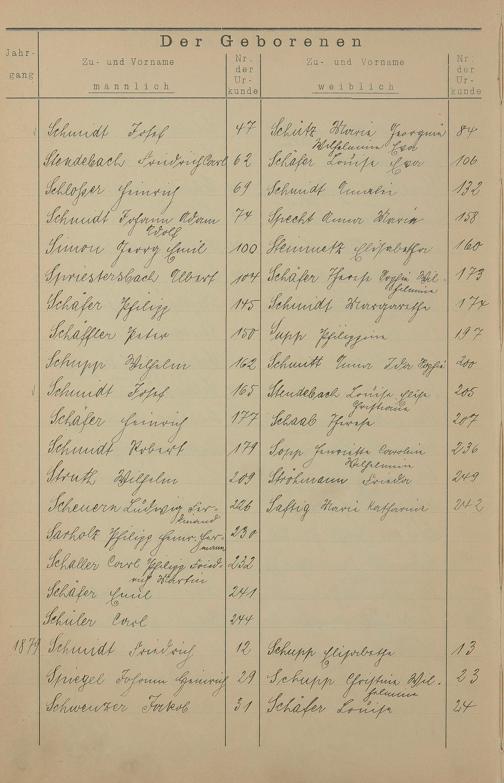 Der Geborenen
Jahr-
gang
Zu- und Vorname
männlich
Nr.
der
Ur-
kunde
Zu- und Vorname
weiblich
Nr.
der
Ur-
kunde
Schmidt Josef 47 Schütz Maria Georgine 84
Wilhelmine Eva
Stendebach Friedrich Carl 62 Schäfer Louise Eva 106
Schlosser Heinrich 69 Schmidt Amalie 132
Schmidt Johann Adam 74 Specht Anna Maria 158
Adolf
Simon Georg Emil 100 Steinmetz Elisabetha 160
Spriestersbach Albert 104 Schäfer Therese Sophie Wil- 173
helmine
Schäfer Philipp 145 Schmidt Margarethe 174
Schäffler Peter 150 Supp Philippine 197
Schupp Wilhelm 162 Schmitt Anna Ida Sophie 200
Schmidt Josef 165 Stendebach Louise Elise 205
Christiane
Schäfer Heinrich 177 Schaab Therese 207
Schmidt Robert 179 Sopp Henriette Caroline 236
Wilhelmine
Struth Wilhelm 209 Ströhmann Frieda 249
Scheuern Ludwig Fer- 226 Saftig Marie Katharine 242
dinand
Sarholz Philipp Heinr. Her- 230
mann
Schaller Carl Philipp Fried- 232
rich Martin
Schäfer Emil 241
Schüler Carl 244
1879 Schmidt Friedrich 12 Schupp Elisabetha 13
Spiegel Johann Heinrich 29 Schupp Christine Wil- 23
helmine
Schwenzer Jakob 31 Schäfer Louise 24